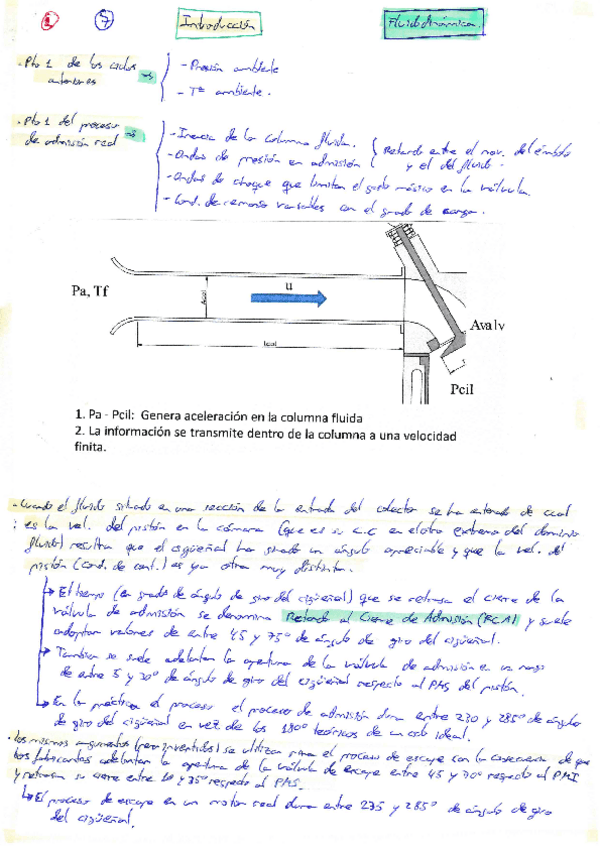 1 7 Introducción Fluidodinámica.
- Pto 1 de los ciclos anteriores ⇒ - Presión ambiente
- Tª ambiente.
- Pto 1 del proceso de admisión real ⇒ - Inercia de la columna fluida.
- Ondas de presión en admisión
Retardo entre el mov. del émbolo y el del fluido.
- Ondas de choque que limitan el gasto másico en la válvula.
- Cond. de remanso variables con el grado de carga.
Pa, Tf
u
Acol
lcol
Avalv
Pcil
1. Pa - Pcil: Genera aceleración en la columna fluida
2. La información se transmite dentro de la columna a una velocidad
finita.
- Cuando el fluido situado en una sección de la entrada del colector se ha enterado de cual
es la vel. del pistón en la cámara (que es su c.c en el otro extremo del dominio
fluido) resulta que el cigüeñal ha girado un ángulo apreciable y que la vel. del
pistón (cond. de cont.) es ya otra muy distinta.
↳ El tiempo (en grados de ángulo de giro del cigüeñal) que se retrasa el cierre de la
válvula de admisión se denomina Retardo al Cierre de Admisión (RCA) y suele
adoptar valores de entre 45 y 75º de ángulo de giro del cigüeñal.
↳ También se suele adelantar la apertura de la válvula de admisión en un rango
de entre 5 y 30º de ángulo de giro del cigüeñal respecto al PMS del pistón.
↳ En la práctica el proceso el proceso de admisión dura entre 230 y 285º de ángulo
de giro del cigüeñal en vez de los 180º teóricos de un ciclo ideal.
- Los mismos argumentos (pero invertidos) se utilizan para el proceso de escape con la consecuencia de que
los fabricantes adelantan la apertura de la válvula de escape entre 45 y 70º respecto al PMI
y retrasan su cierre entre 10 y 35º respecto al PMS.
↳ El proceso de escape en un motor real dura entre 235 y 285º de ángulo de giro
del cigüeñal.